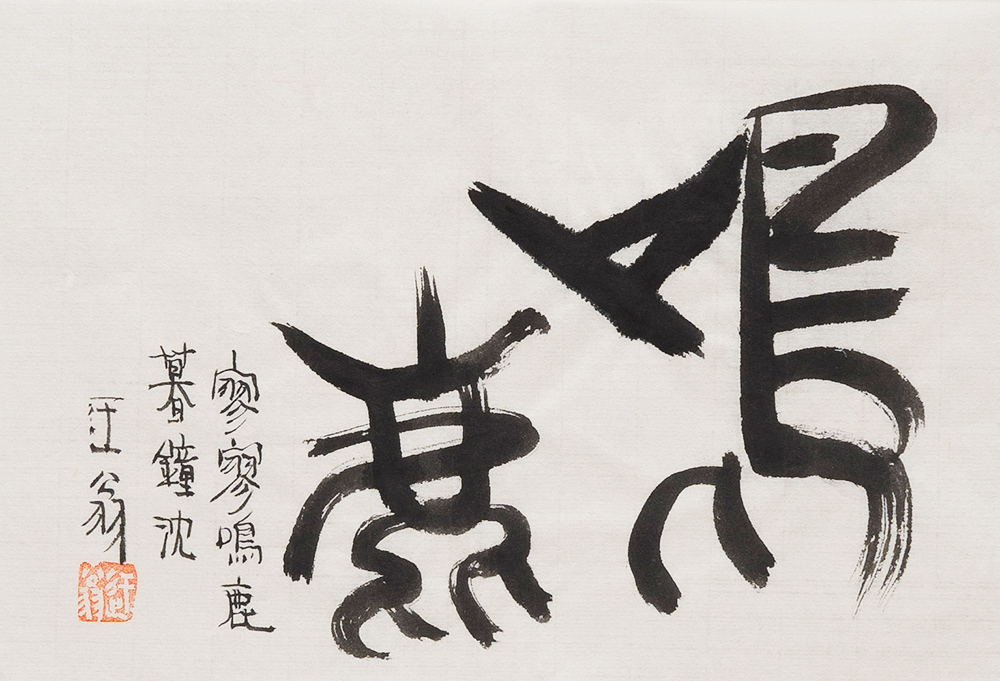 鳴鹿
寥寥鳴鹿
暮鐘沈
翁